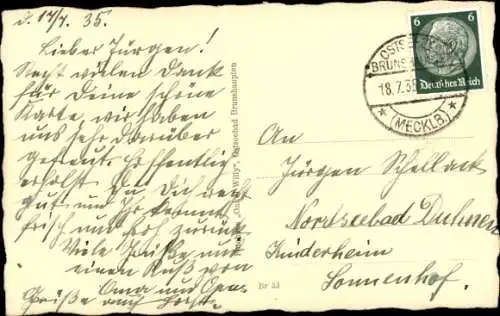 d. 17/7. 35.
Lieber Jürgen!
Recht vielen Dank
für Deine schöne
Karte, wir haben
uns sehr darüber
gefreut. Hoffentlich
erholst Du Dich recht
gut und Ihr kommt
frisch und froh zurück
Viele Grüße und
einen Kuß von
Oma und Opa.
Grüße auch
OSTSEEBAD
BRUNSHAUPTEN
18.7.35
(MECKLB.)
6 6
Deutsches Reich
Ostseebad Brunshaupten
An
Jürgen Schellack
Nordseebad Duhnen
Kinderheim
Sonnenhof.
Br 53